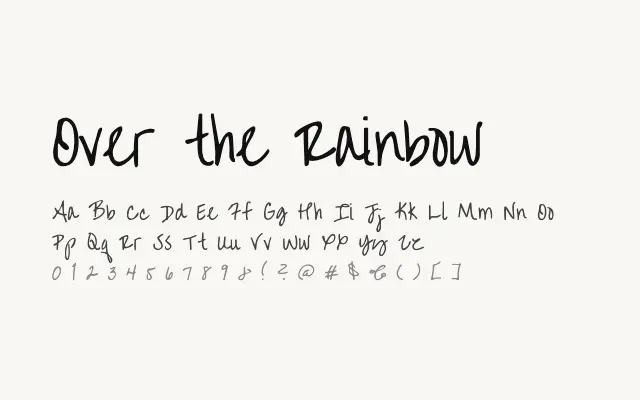 Over the Rainbow
Aa Bb Cc Dd Ee Ff Gg Hh Ii Jj Kk Ll Mm Nn Oo
Pp Qq Rr Ss Tt Uu Vv Ww Xx Yy Zz
0 1 2 3 4 5 6 7 8 9 & ! ? @ # $ € ( ) [ ]